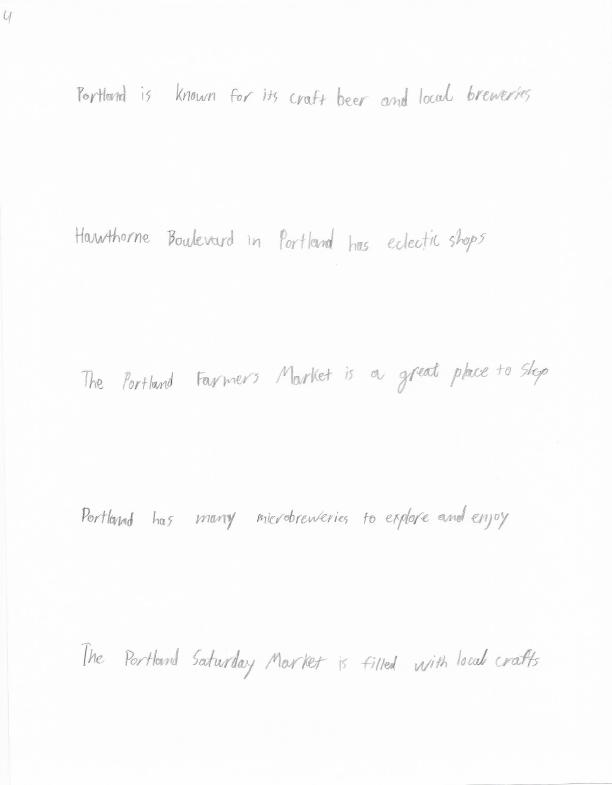 4
Portland is known for its craft beer and local breweries
Hawthorne Boulevard in Portland has eclectic shops
The Portland Farmers Market is a great place to shop
Portland has many microbreweries to explore and enjoy
The Portland Saturday Market is filled with local crafts